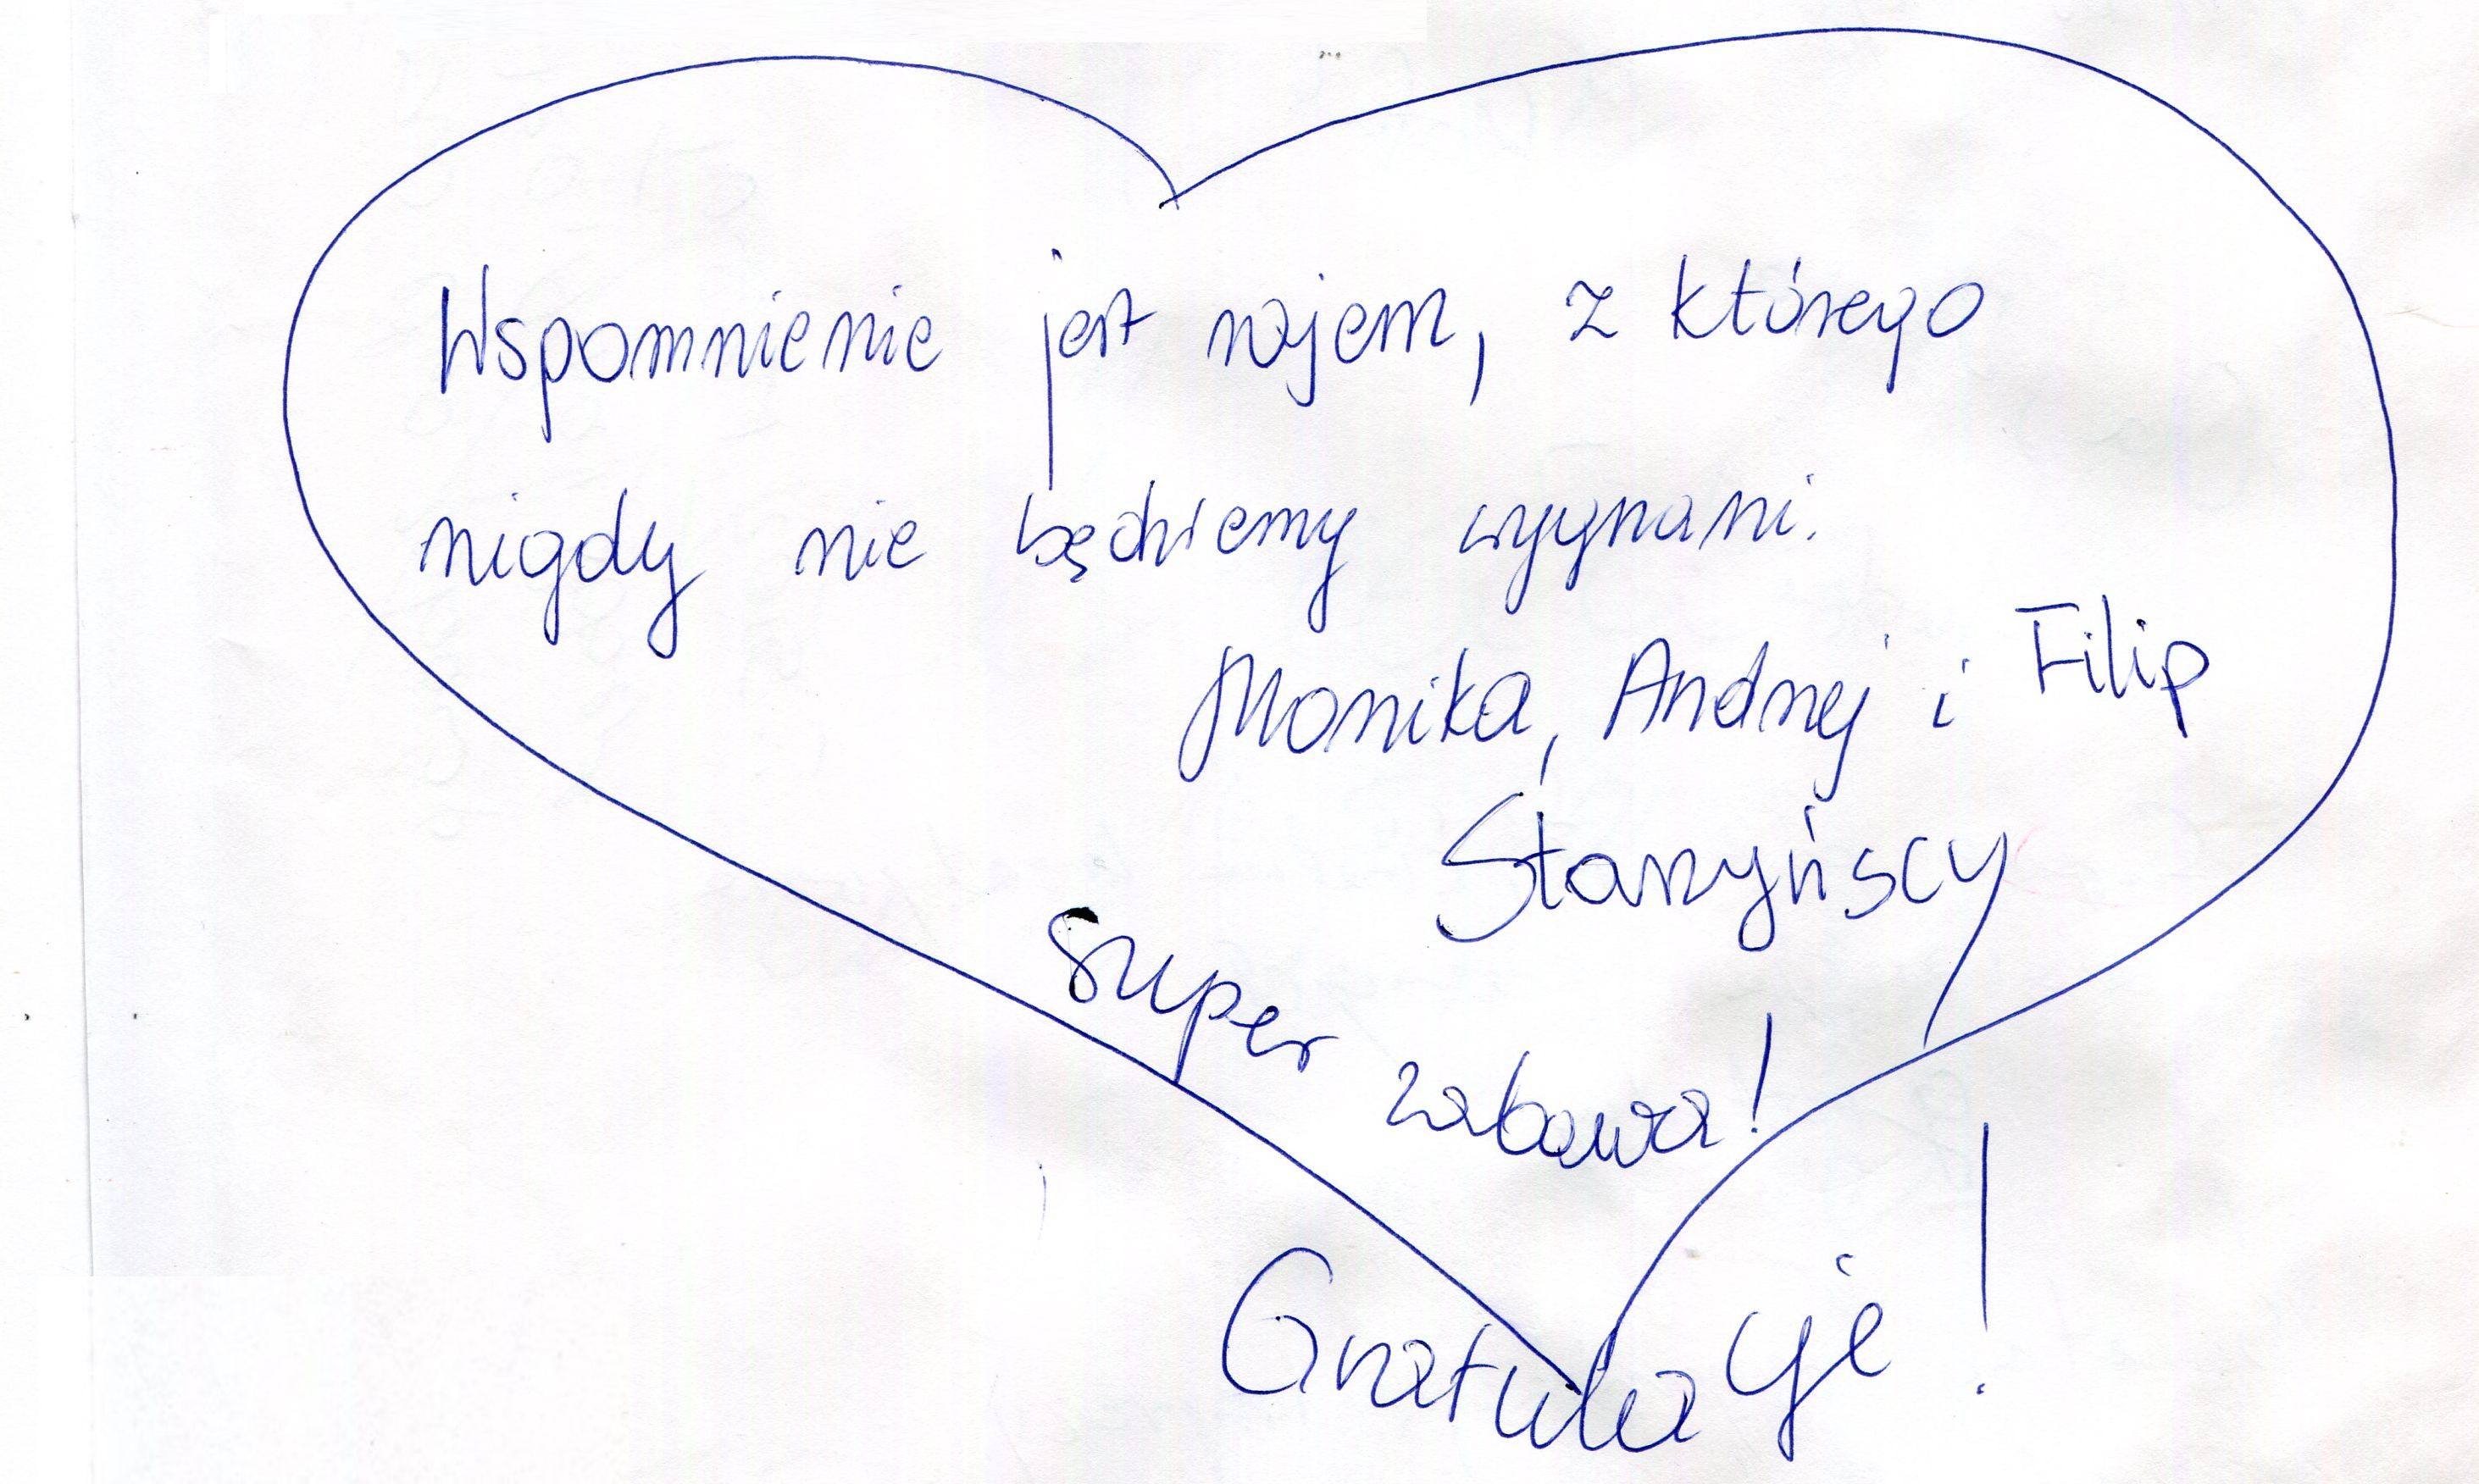 Wspomnienie jest rajem, z którego
nigdy nie będziemy wygnani.
Monika, Andrzej i Filip
Starzyńscy
Super zabawa!
Gratulacje!